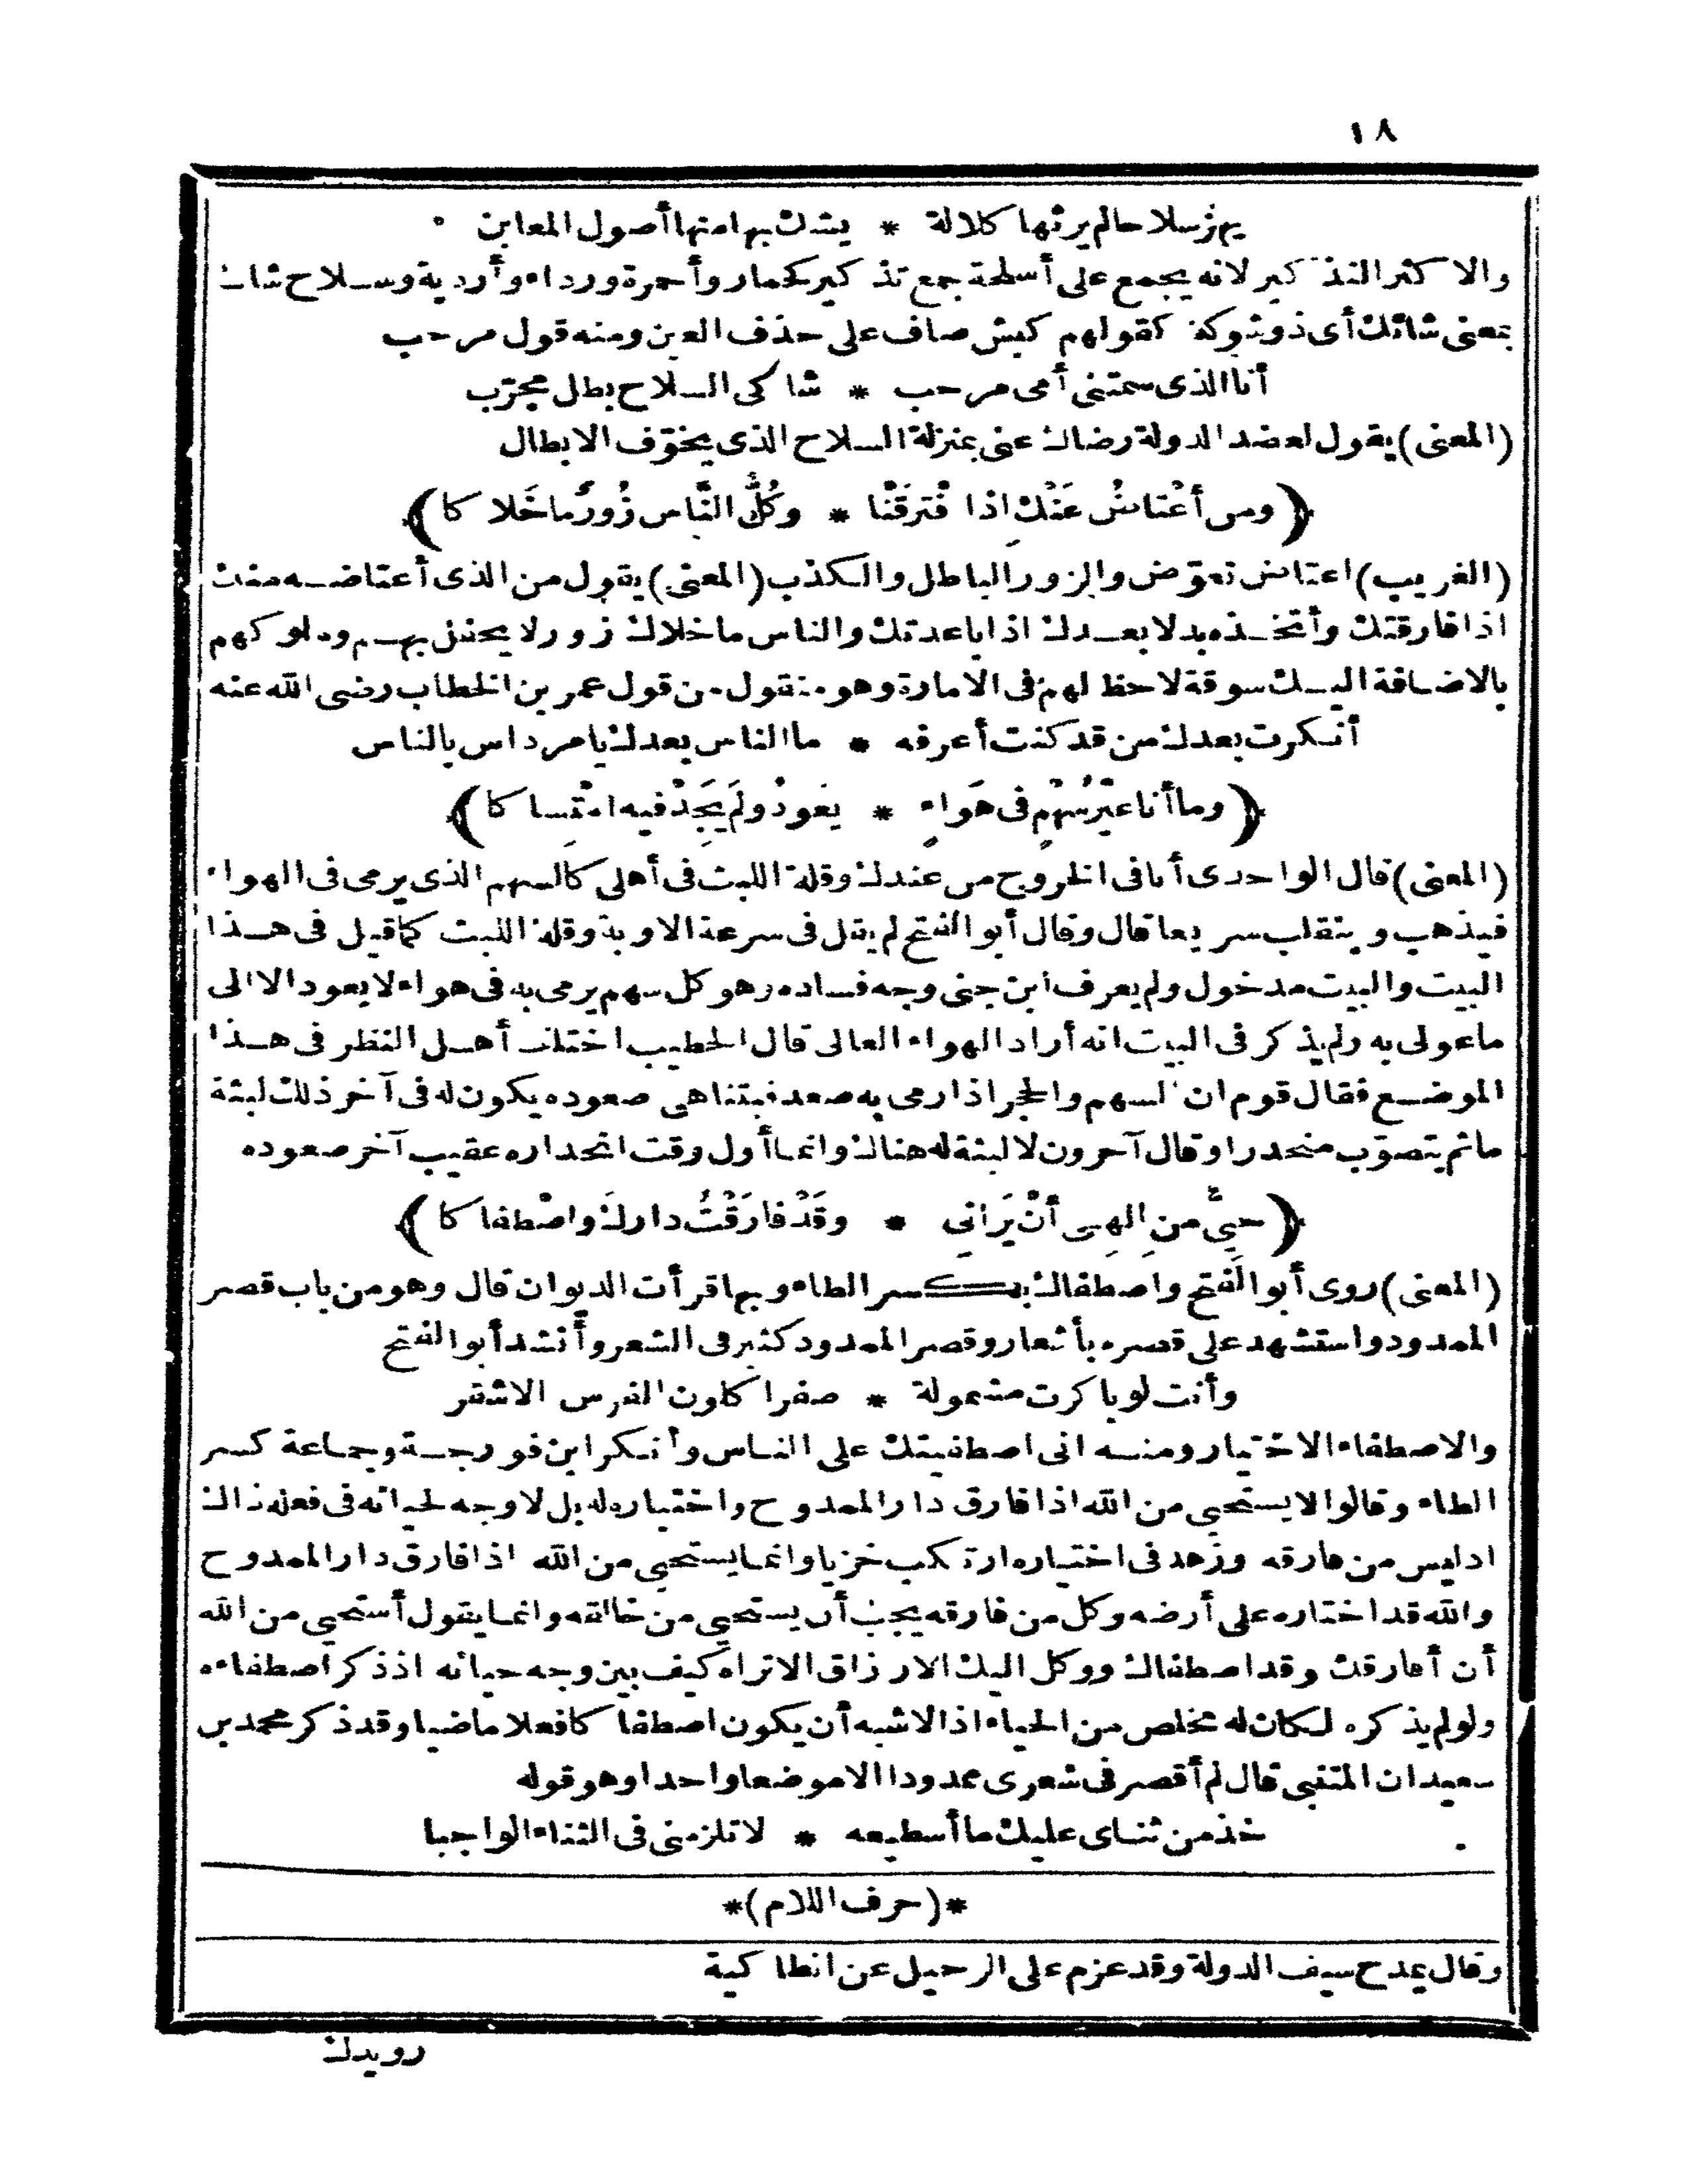 ١٨
يهز سلاحا لم يرثها كلالة * يشك بها منها أصول المغابن
والاكثر التذكير لانه يجمع على أسلحة جمع تذكير كحمار وأحمرة ورداء وأردية وسلاح شاك
بمعنى شائك أى ذوشوكة كقولهم كبش صاف على حذف العين ومنه قول مرحب
أنا الذى سمتنى أمى مرحب * شاكى السلاح بطل مجرّب
(المعنى) يقول لعضد الدولة رضاك عنى بمنزلة السلاح الذى يخوّف الابطال
﴿ومن أَعْتاضُ عَنْكَ اذا فْتَرقْنا * وكُلُّ النَّاسِ زُورٌ ما خَلاكا﴾
(الغريب) اعتاض تعوّض والزور الباطل والكذب (المعنى) يقول من الذى أعتاضه منك
اذا فارقتك وأتخذه بدلا بعدك اذا باعدتك والناس ما خلاك زور لا يحتفل بهم وملوكهم
بالاضافة اليك سوقة لاحظ لهم فى الامارة وهو منقول من قول عمر بن الخطاب رضى الله عنه
أنكرت بعدك من قد كنت أعرفه * ما الناس بعدك يا مرداس بالناس
﴿وما أنا غيْرُ سَهْمٍ فى هَواءٍ * يَعودُ ولَمْ يَجِدْ فيه امْتِساكا﴾
(المعنى) قال الواحدى أنا فى الخروج من عندك وقلة اللبث فى أهلى كالسهم الذى يرمى فى الهواء
فيذهب وينقلب سريعا قال وقال أبو الفتح لم يقل فى سرعة الاوبة وقلة اللبث كما قيل فى هذا
البيت والبيت مدخول ولم يعرف ابن جنى وجه فساده وهو كل سهم يرمى به فى هواء لا يعود الا الى
ماعولى به ولم يذكر فى البيت انه أراد الهواء العالى قال الخطيب اختلف أهل النظر فى هذا
الموضع فقال قوم ان السهم والحجر اذا رمى به صعد فيتناهى صعوده يكون له فى آخر ذلك لبثة
ما ثم يتصوّب منحدرا وقال آخرون لا لبثة له هناك وانما أول وقت انحداره عقيب آخر صعوده
﴿حيىٌّ من إلهِى أنْ يَرَانِى * وقَدْ فارَقْتُ دارَكَ واصْطِفاكا﴾
(المعنى) روى أبو الفتح واصطفاك بكسر الطاء وبها قرأت الديوان قال وهو من باب قصر
الممدود واستشهد على قصره بأشعار وقصر الممدود كثير فى الشعر وأنشد أبو الفتح
وأنت لو باكرت مشمولة * صفرا كلون الفرس الاشقر
والاصطفاء الاختيار ومنه انى اصطفيتك على الناس وأنكر ابن فورجة وجماعة كسر
الطاء وقالوا لا يستحيى من الله اذا فارق دار الممدوح واختياره له بل لا وجه لحيائه فى فعله ذاك
اذ ليس من فارقه وزهد فى اختياره ارتكب خزيا وانما يستحيى من الله اذا فارق دار الممدوح
والله قد اختاره على أرضه وكل من فارقه يجب أن يستحيى من خالقه وانما يقول أستحيى من الله
أن أفارقك وقد اصطفاك ووكل اليك الارزاق الا تراه كيف بين وجه حيائه اذ ذكر اصطفاءه
ولو لم يذكره لكان له مخلص من الحياء اذ الاشبه أن يكون اصطفاكا فعلا ماضيا وقد ذكر محمد بن
سعيد ان المتنبى قال لم أقصر فى شعرى ممدودا الا موضعا واحدا وهو قوله
خذ من ثناى عليك ما أسطيعه * لا تلزمنى فى الثناء الواجبا
*(حرف اللام)*
وقال يمدح سيف الدولة وقد عزم على الرحيل عن انطاكية
رويدك